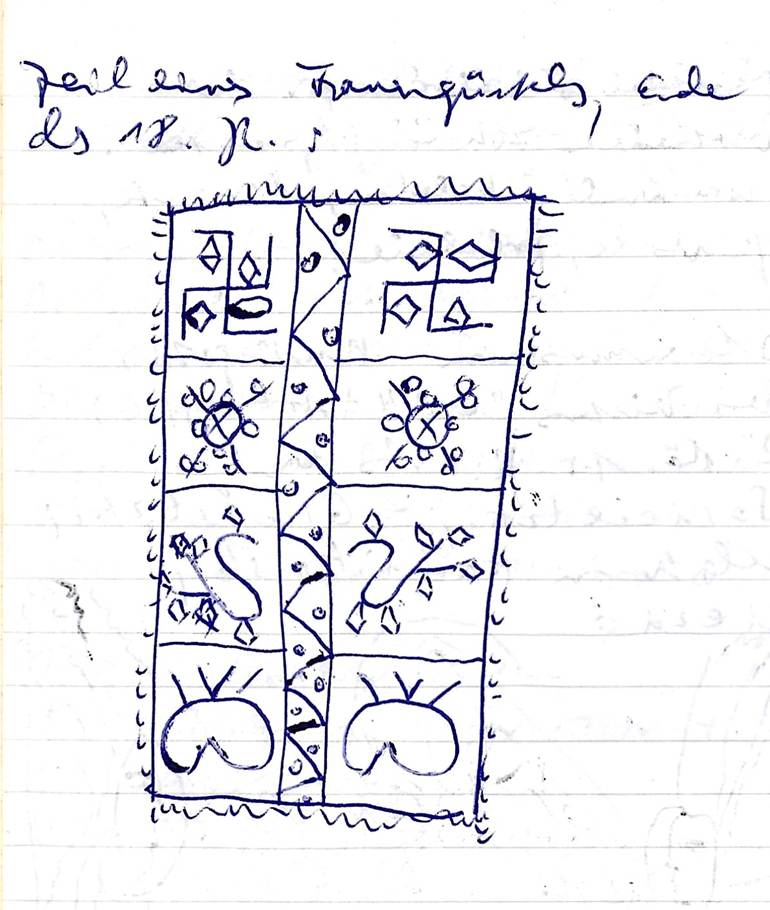 Teil eines Frauengürtels, Ende
des 18. Jh. :